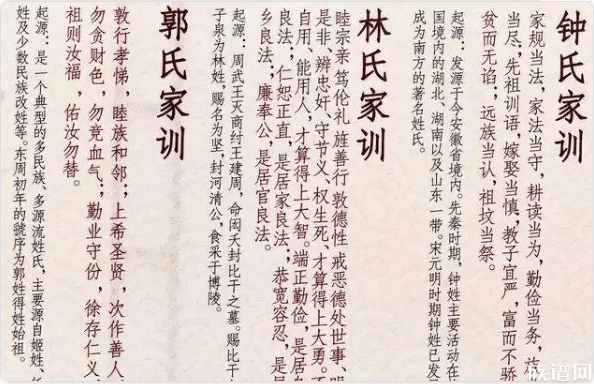 钟氏家训
家规当法，家法当守，耕读当为，勤俭当务，
当尽；先祖训语，嫁娶当慎，教子宜严，富而不骄
贫而无谄；远族当认，祖坟当祭。
起源：发源于今安徽省境内。先秦时期，钟姓主要活动在
国境内的湖北、湖南以及山东一带。宋元明时期钟姓已发
成为南方的著名姓氏。
林氏家训
睦宗亲 笃伦礼 旌善行 敦德性 戒恶德处世事、明
是非、辨忠奸、守节义、权生死、才算得上大勇。
自用、能用人，才算得上大智。端正勤俭，是居身
良法；仁恕正直，是居家良法；恭宽容忍，是居
乡良法；廉奉公，是居官良法。
起源：周武王灭商纣王建周，命闳夭封比干之墓。赐比干
子泉为林姓，赐名为坚，封河清公，食采于博陵。
郭氏家训
敦行孝悌，睦族和邻；上希圣贤，次作善人
勿贪财色，勿竞血气；勤业守份，徐存仁义
祖则汝福，佑汝勿替。
起源：是一个典型的多民族、多源流姓氏，主要源自姬姓、任
姓及少数民族改姓等。东周初年的虢序为郭姓得姓始祖。
族谱网